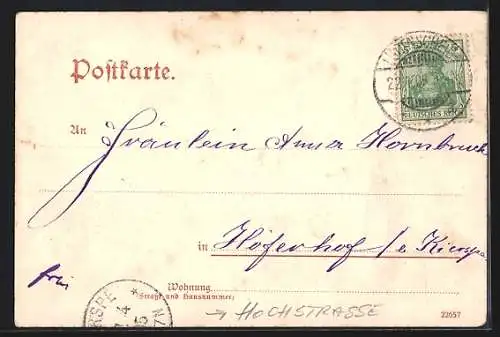 Postkarte.
DEUTSCHES REICH
An
Fräulein Anna Hornbruch
in Höferhof
frei
Wohnung
(Straße und Hausnummer)
→ HOCHSTRASSE
22657